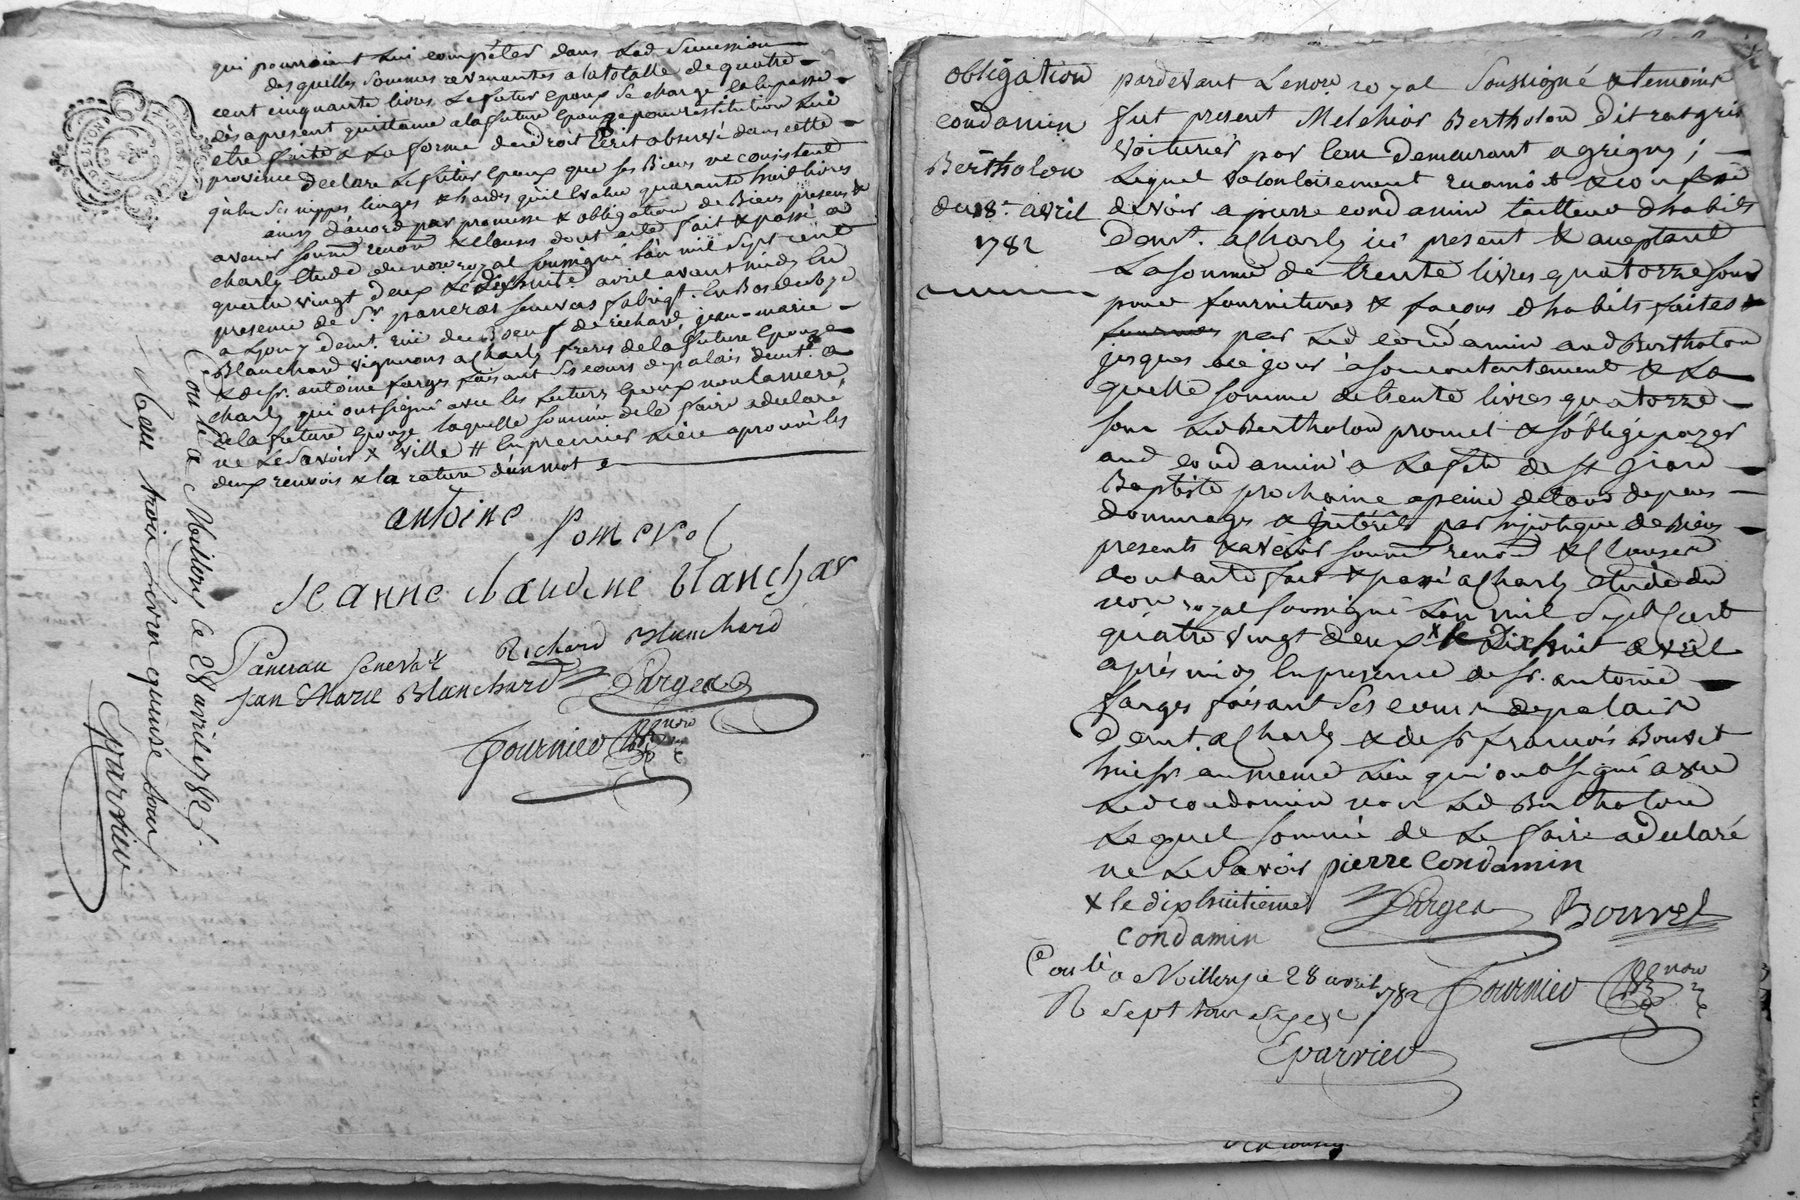 qui pourroient lui compéter dans lad succession
desquelles sommes revenantes a la totalle de quatre
cent cinquante livres le futur epoux se charge et en passe
dès apresent quittance a la future epouze pour restitution lui
etre faite a la forme du droit Ecrit observé dans cette
province declare le futur epoux que ses Biens ne consistent
qu'en ses nippes linges & hardes qu'il évalue quarante huit livres
ainsy d'acord par promesse & obligation de Biens presens &
avenir soumⁿ renonⁿ & clauses dont acte fait & passé a
charly Etude du noʳᵉ royal soussigné l'an mil sept cent
quatre vingt deux le dixhuit avril avant midy En
presence de Sʳ paneras senevas fabriqᵗ. En Bas de soye
a Lyon y demᵗ. ruë du Boeuf de richard, jean-marie
Blanchard vignerons a Charly freres de la future epouze
& de sʳ. antoine farges faisant ses cours de palais demᵗ. a
charly qui ont signé avec les futurs epoux non la mere
de la future epouze laquelle sommée de le faire a declaré
ne le savoir & ville # En premier lieu aprouvé les
deux renvois & la rature d'un mot
antoine Pomerol
Jeanne claudine blanchar
Richard Blanchard
Paneras Senevas
Jean Marie Blanchard Farges
Fournier noʳᵉ
Con lé a Millery ce 28 avril 1782
Reçu trois livres quinze sous
Eparvier
obligation
condamin
Bertholon
du 18ᵉ avril
1782
pardevant Le noʳᵉ royal Soussigné & temoins
fut present Melchior Bertholon dit ratgris
voiturier par eau demeurant a grigny;
Lequel volontairement reconnoit & confesse
devoir a pierre condamin tailleur d'habits
demᵗ. a Charly ici present & aceptant
La somme de trente livres quatorze sous
pour fournitures & façons d'habits faites
par Led condamin aud Bertholon
jusques à ce jour a son contentement & La
quelle somme de trente livres quatorze
sous Led Bertholon promet & s'oblige payer
aud condamin a La fete de st jean
Baptiste prochaine a peine de tous depens
dommages & interêts par hipoteque de Biens
presents & avenir soumⁿ renonⁿ & Clauses
dont acte fait & passé a Charly etude du
noʳᵉ royal soussigné L'an mil sept Cent
quatre vingt deux x le dixhuit avril
après midy En presence de sʳ. antoine
farges faisant ses cours de palais
demᵗ. a Charly & de sʳ françois Bouvet
huissʳ au meme Lieu qui ont signé avec
Led condamin non Led Bertholon
Lequel sommé de Le faire a declaré
ne Le Savoir pierre Condamin
x le dixhuitieme Farges Bouvet
Condamin
Con lé a Millery ce 28 avril 1782 Fournier noʳᵉ
R sept sous
Eparvier